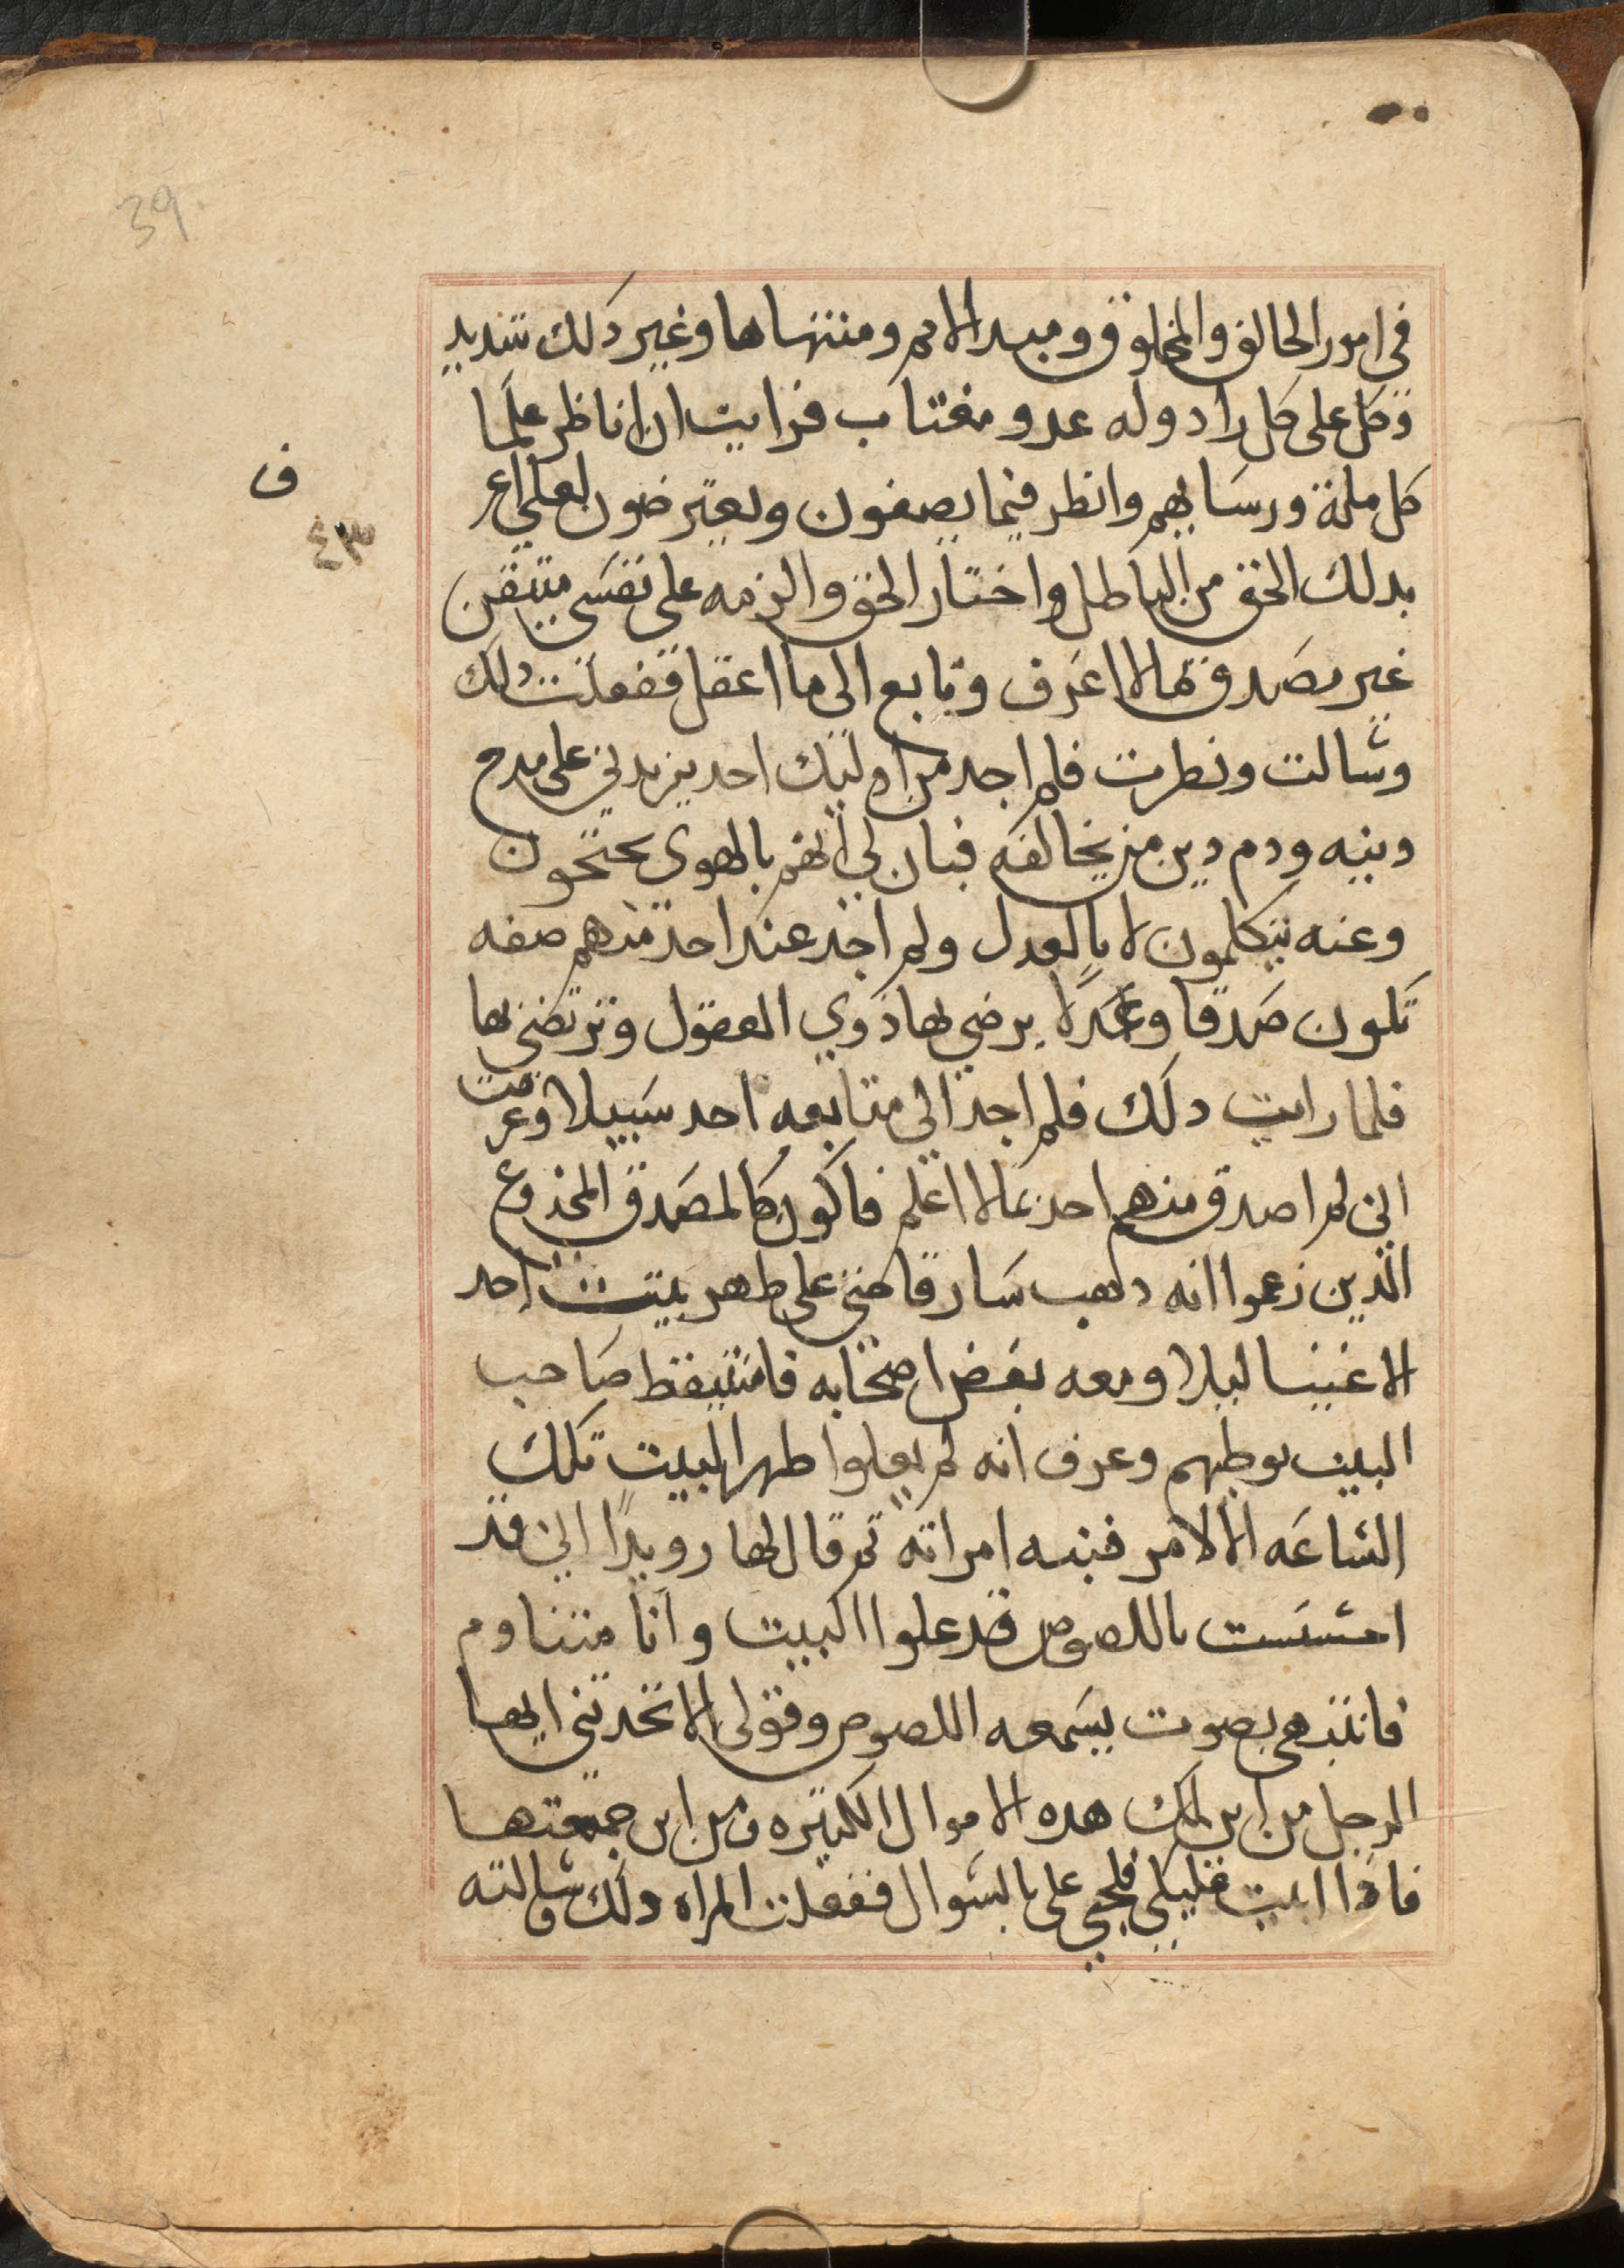 39
في امور الخالق والمخلوق ومبدا الامر ومنتهاها وغير ذلك شديد
وكل على كل راد وله عدو مغتاب فرايت ان اناظر علما
ف
كل ملة ورسايهم وانظر فيما يصفون ويعترضون لعلي اعر
٤٣
بدلك الحق من الباطل واختار الحق والزمه على نفسي متيقن
غير مصدق بما لا اعرف وتابع الى ما اعقل ففعلت ذلك
وسالت ونظرت فلم اجد من اوليك احد يزيدني على مدح
دينه ودم دين من يخالفه فبان لي انهم بالهوى يحتجون
وعنه يتكلمون لا بالعدل ولم اجد عند احد منهم صفه
تكون صدقا وعدلا يرضي بها ذوي العقول وترتضي بها
فلما رايت دلك فلم اجد الى متابعه احد سبيلا وعرفت
اني لم اصدق منهم احد بما لا اعلم فاكون كالمصدق المخدوع
الذين زعموا انه دهب سارقا حتى على ظهر بيت احد
الاغنيا ليلا ومعه بعض اصحابه فاستيقظ صاحب
البيت بوطيهم وعرف انه لم يعلوا ظهر البيت تلك
الساعه الا لامر فنبه امراته ثم قال لها رويدا اني قد
احسست باللصوص قد علوا البيت وانا متناوم
فانتبهي بصوت يسمعه اللصوص وقولى الا تخدثني ايها
الرجل من اين لك هذه الاموال الكثيره ومن اين جمعتها
فاذا ابيت عليكي فلجي على بالسوال ففعلت المراه ذلك وسالته